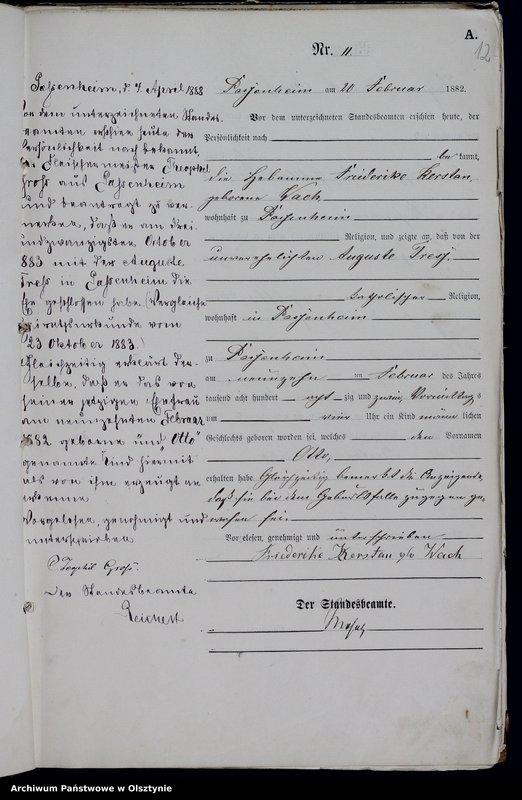 A.
12
Nr. 11
Passenheim am 20 Februar 1882.
Vor dem unterzeichneten Standesbeamten erschien heute, der
Persönlichkeit nach
be kannt,
die Hebamme Friederike Kerstan,
geborene Wach
wohnhaft zu Passenheim
Religion, und zeigte an, daß von der
unverehelichten Auguste
katholischer Religion,
wohnhaft in Passenheim
zu Passenheim
am neunzehn ten Februar des Jahres
tausend acht hundert acht zig und zwei, Vormittags
um vier Uhr ein Kind männ lichen
Geschlechts geboren worden sei, welches den Vornamen
Otto,
erhalten habe Gleichzeitig bemerkt die Anzeigende,
daß sie bei dem Geburtsfalle zugegen ge-
wesen sei.
Vorgelesen, genehmigt und unterschrieben
Friederike Kerstan geb Wach
Der Standesbeamte.
Passenheim, d. 7 April 1888
Vor dem unterzeichneten Standes-
beamten erschien heute der
Persönlichkeit nach bekannt,
der Fleischermeister
Gross aus Passenheim
und beantragt zu ver-
merken, daß er am drei-
undzwanzigsten October
1883 mit der Auguste
in Passenheim die
Ehe geschlossen habe (Vergleiche
Heiratsurkunde vom
23 Oktober 1883.)
Gleichzeitig erklärt der-
selbe, daß er das von
seiner jetzigen Ehefrau
am neunzehnten Februar
1882 geborene und „Otto"
genannte Kind hiermit
als von ihm erzeugt an
erkenne
Vorgelesen, genehmigt und
unterschrieben
Gross.
Der Standesbeamte
Reichert
Archiwum Państwowe w Olsztynie